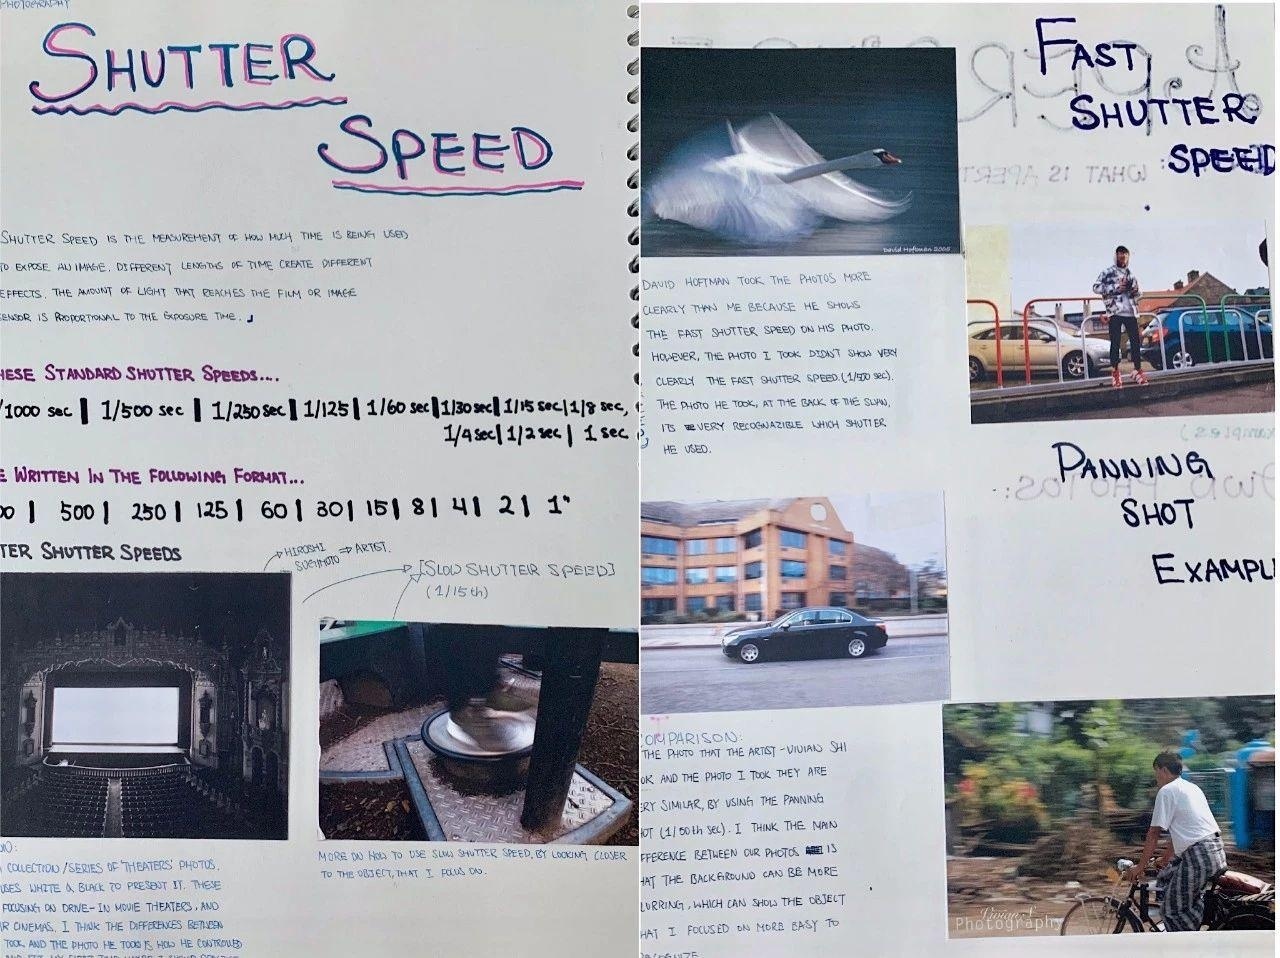 PHOTOGRAPHY
SHUTTER
SPEED
SHUTTER SPEED IS THE MEASUREMENT OF HOW MUCH TIME IS BEING USED
TO EXPOSE AN IMAGE. DIFFERENT LENGTHS OF TIME CREATE DIFFERENT
EFFECTS. THE AMOUNT OF LIGHT THAT REACHES THE FILM OR IMAGE
SENSOR IS PROPORTIONAL TO THE EXPOSURE TIME.
HESE STANDARD SHUTTER SPEEDS....
/1000 sec | 1/500 sec | 1/250 sec | 1/125 | 1/60 sec | 1/30 sec | 1/15 sec | 1/8 sec,
1/4 sec | 1/2 sec | 1 sec
E WRITTEN IN THE FOLLOWING FORMAT...
00 | 500 | 250 | 125 | 60 | 30 | 15 | 8 | 4 | 2 | 1"
TER SHUTTER SPEEDS
HIROSHI ⇒ ARTIST.
SUGIMOTO
[SLOW SHUTTER SPEED]
(1/15th)
MORE ON HOW TO USE SLOW SHUTTER SPEED, BY LOOKING CLOSER
TO THE OBJECT, THAT I FOCUS ON.
COLLECTION/SERIES OF 'THEATERS' PHOTOS.
USES WHITE & BLACK TO PRESENT IT. THESE
FOCUSING ON DRIVE-IN MOVIE THEATERS, AND
R CINEMAS. I THINK THE DIFFERENCES BETWEEN
TOOK AND THE PHOTO HE TOOK IS HOW HE CONTROLLED
FAST
SHUTTER
SPEED
David Hoffman 2005
WHAT IS APERT
DAVID HOFTMAN TOOK THE PHOTOS MORE
CLEARLY THAN ME BECAUSE HE SHOWS
THE FAST SHUTTER SPEED ON HIS PHOTO.
HOWEVER, THE PHOTO I TOOK DIDN'T SHOW VERY
CLEARLY THE FAST SHUTTER SPEED.(1/500 sec).
THE PHOTO HE TOOK, AT THE BACK OF THE SWAN,
ITS VERY RECOGNAZIBLE WHICH SHUTTER
HE USED.
PANNING
SHOT
EXAMPL
COMPARISON:
THE PHOTO THAT THE ARTIST - VIVIAN SHI
OK AND THE PHOTO I TOOK THEY ARE
ERY SIMILAR, BY USING THE PANNING
OT (1/60th sec). I THINK THE MAIN
FFERENCE BETWEEN OUR PHOTOS IS
HAT THE BACKGROUND CAN BE MORE
LURRING, WHICH CAN SHOW THE OBJECT
HAT I FOCUSED ON MORE EASY TO
Photography